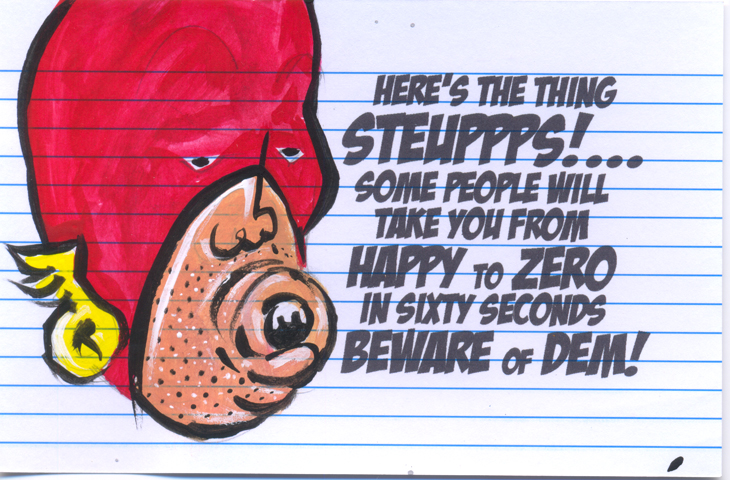 HERE'S THE THING
STEUPPPS!....
SOME PEOPLE WILL
TAKE YOU FROM
HAPPY TO ZERO
IN SIXTY SECONDS
BEWARE OF DEM!